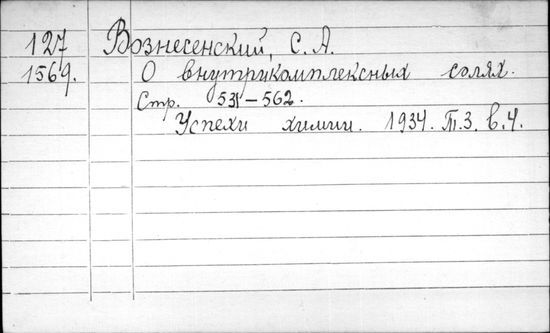 127 Вознесенский, С. А.
1569. О внутрикомплексных солях.
Стр. 531-562.
Успехи химии. 1934. Т.3. в.4.